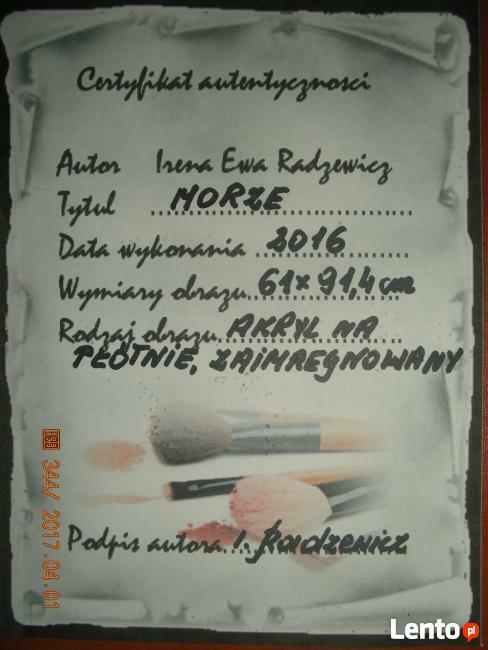 Certyfikat autentyczności
Autor Irena Ewa Radzewicz
Tytuł MORZE
Data wykonania 2016
Wymiary obrazu 61 x 91,4 cm
Rodzaj obrazu AKRYL NA
PŁÓTNIE, ZAIMREGNOWANY
Podpis autora I. Radzewicz
344/ 2017.04.01
Lento pl